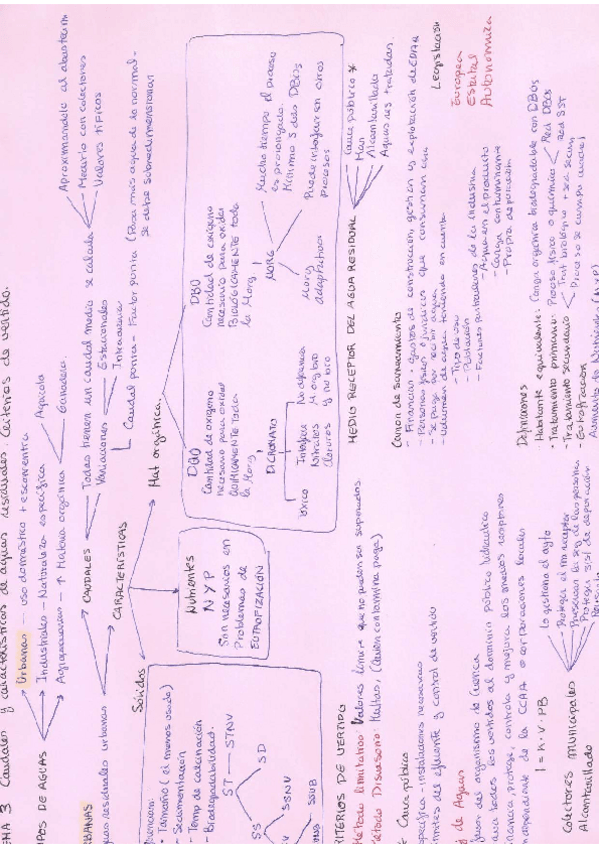 Caudales y características de aguas residuales. Criterios de vertido.
TIPOS DE AGUAS
Urbanas – uso doméstico + escorrentía
Industriales – Naturaleza específica
Agropecuarias – ↑ Materia orgánica
Agrícola
Ganadera
URBANAS
aguas residuales urbanas
CAUDALES
Todas tienen un caudal medio se calcula
Aproximandole al abastecim
Medirlo con colectores
Valores típicos
Variaciones
Estacionales
Caudal punta – Factor punta (Pasa más agua de lo normal –
se debe sobredimensionar
CARACTERÍSTICAS
Sólidos
Tamaño (el menos usado)
Sedimentación
Temp de calcinación
Biodegradabilidad
ST – STNV
SD
SS
SSNV
SSUB
Nutrientes
N y P
Son necesarios en
Problemas de
EUTROFIZACIÓN
Mat orgánica
DQO
Cantidad de oxígeno
necesario para oxidar
QUÍMICAMENTE toda
la Morg
DICROMATO
Tóxico
Interfiere
Nitratos
Cloruros
No diferencia
M org bio
y no bio
DBO
Cantidad de oxígeno
necesario para oxidar
BIOLÓGICAMENTE toda
la Morg
MORG
Mucho tiempo el proceso
es prolongado.
Mínimo 5 días DBO5
Puede interferir en otros
procesos
Morg
adaptados
CRITERIOS DE VERTIDO
Método limitativo: Valores límite que no pueden ser superados.
Método Disuasorio: Multas, (Quien contamina paga)
MEDIO RECEPTOR DEL AGUA RESIDUAL
Cauce público *
Mar
Alcantarillado
Aguas res tratadas.
* Cauce público
específica – instalaciones necesarias
límites del efluente y control de vertido
Ley de Aguas
organismo de Cuenca
todos los vertidos al dominio público hidráulico
protege, controla y mejora los medios receptores
de la CCAA o corporaciones locales
I = K · V · PB
Canon de saneamiento
- Financiar gastos de construcción, gestión y explotación de EDAR
- Personas físicas o jurídicas que consuman agua
- Se paga por recibir agua
- Volumen de agua teniendo en cuenta
- Tipo de uso
- Población
- Factores particulares de la industria
- Agua en el producto
- Carga contaminante
- Propia depuración
Legislación
Europea
Estatal
Autonómica
Colectores municipales
Alcantarillado
Lo gestiona el ayto
Proteger el m receptor
Preservar la seg de las personas
Proteger sist de depuración
Definiciones
- Habitante equivalente: Carga orgánica biodegradable con DBO5
- Tratamiento primario: Proceso físico o químico
Red DBO5
Red SST
- Tratamiento secundario
Trat biológico + sed secun
Proceso se cumpla
- Eutrofización
Aumento de Nutrientes (N y P)